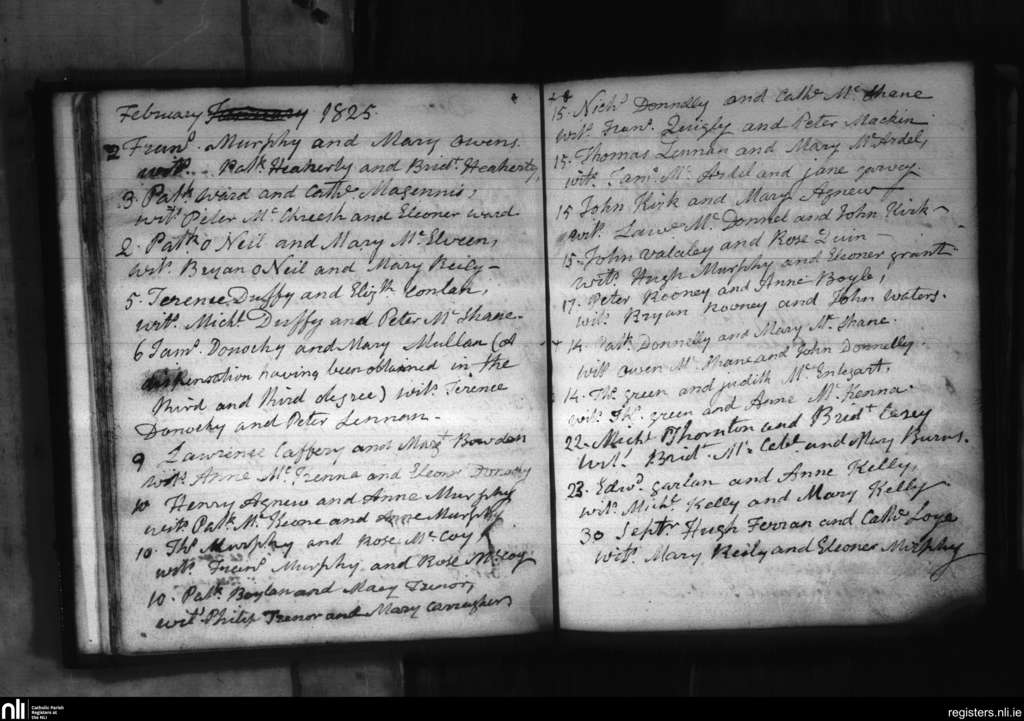 February January 1825
2 Franˢ. Murphy and Mary Owens
witˢ. Patᵏ Heaherty and Bridᵗ. Heaherty,
3. Patᵏ Ward and Cathᵉ Magennis,
witˢ Peter Mᶜ Chreesh and Eleoner ward
2. Patᵏ O Neil and Mary Mᶜ Elveen,
witˢ. Bryan O Neil and Mary Reily -
5. Terence Duffy and Elizᵗʰ Conlan,
witˢ. Michˡ Duffy and Peter Mᶜ Shane.
6 Jamˢ. Donochy and Mary Mullan (a
dispensation having been obtained in the
third and third degree) witˢ. Terence
Donochy and Peter Lennon -
9 Lawrence Caffery and Margᵗ Bowden
witˢ Anne Mᶜ Kenna and Eleonʳ Donochy
10 Henry Agnew and Anne Murphy
witˢ Patᵏ Mᶜ Keone and Anne Murphy
10. Thˢ Murphy and Rose Mᶜ Coy
witˢ. Franˢ. Murphy and Rose McCoy
10. Patᵏ Boylan and Mary Trenor,
witˢ Philip Trenor and Mary Carragher,
15. Nichˢ Donnelly and Cathᵉ Mᶜ Shane
witˢ. Franˢ. Quigly and Peter Mackin
15. Thomas Linnan and Mary Mᶜ Ardel,
witˢ. Jamˢ. Mᶜ Ardel and jane garvey
15 John Kirk and Mary Agnew
witˢ. Lawᵉ Mᶜ Donnel and John Kirk -
15. John and Rose Quin -
witˢ. Hugh Murphy and Eleoner grant
17. Peter Rooney and Anne Boyle,
witˢ. Bryan Rooney and John Waters.
14. Patᵏ Donnelly and Mary Mᶜ Shane.
witˢ Owen Mᶜ Shane and John Donnelly.
14. Thˢ. green and judith Mᶜ Entegart,
witˢ. Thˢ. green and Anne Mᶜ Kenna.
22. Michˡ Thornton and Bridᵗ Casey
witˢ. Brid. Mᶜ and Mary Burns.
23. Edwᵈ garlan and Anne Kelly,
witˢ. Michˡ. Kelly and Mary Kelly
30 Septʳ Hugh Ferran and Cathᵉ Loye
witˢ. Mary Reily and Eleoner Murphy
nli Catholic Parish
Registers at
the NLI
registers.nli.ie